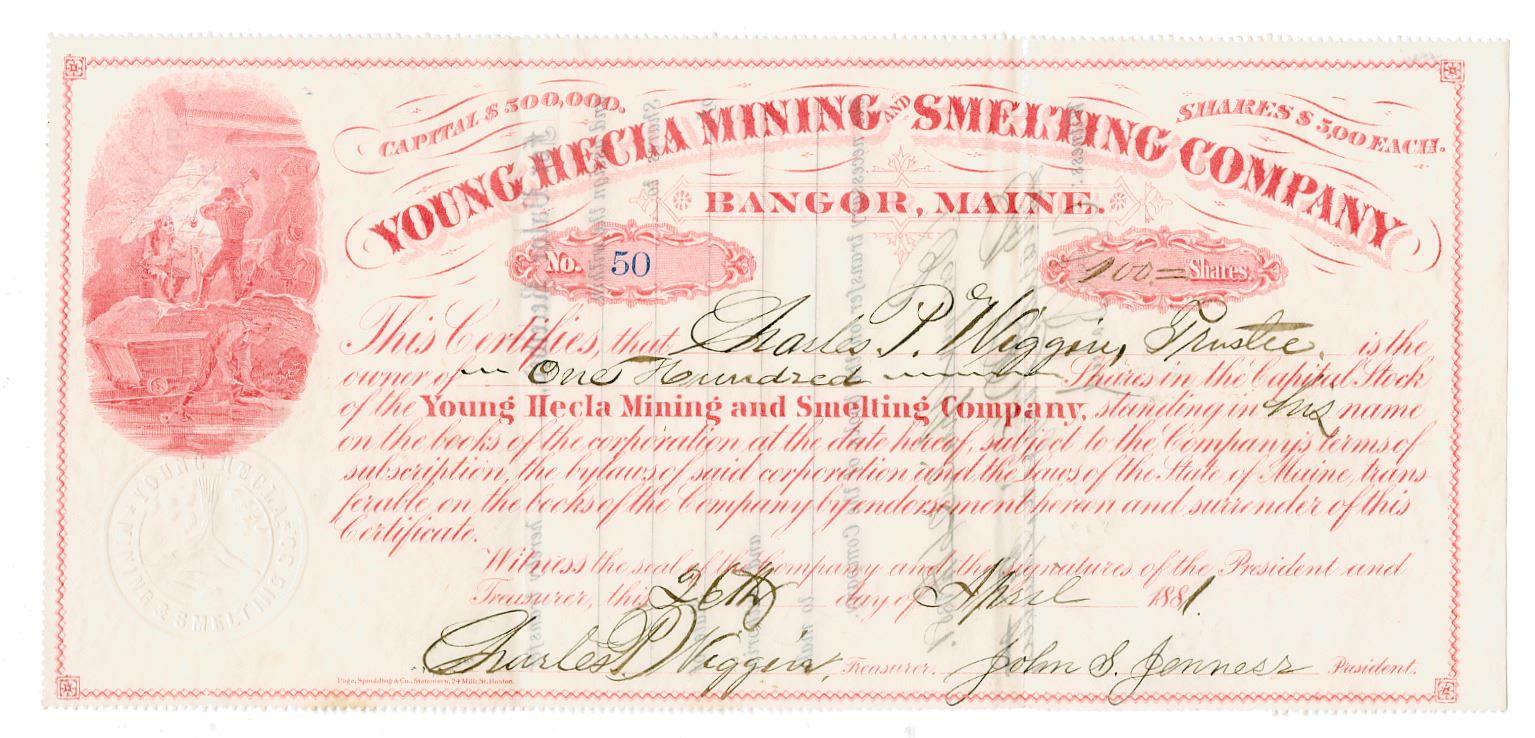 CAPITAL $500,000.
SHARES $5,00 EACH.
YOUNG HECLA MINING AND SMELTING COMPANY
BANGOR, MAINE.
No. 50
100= Shares.
This Certifies, that Charles P. Wiggin, Trustee. is the
owner of One Hundred Shares in the Capital Stock
of the Young Hecla Mining and Smelting Company, standing in his name
on the books of the corporation at the date hereof, subject to the Company's terms of
subscription, the bylaws of said corporation and the laws of the State of Maine, trans
ferable on the books of the Company by endorsement hereon and surrender of this
Certificate.
Witness the seal of the Company and the signatures of the President and
Treasurer, this 26th day of April 1881.
Charles P. Wiggin, Treasurer. John S. Jenness President.
Page, Spaulding & Co., Stationers, 24 Milk St. Boston.
YOUNG HECLA
MINING & SMELTING CO